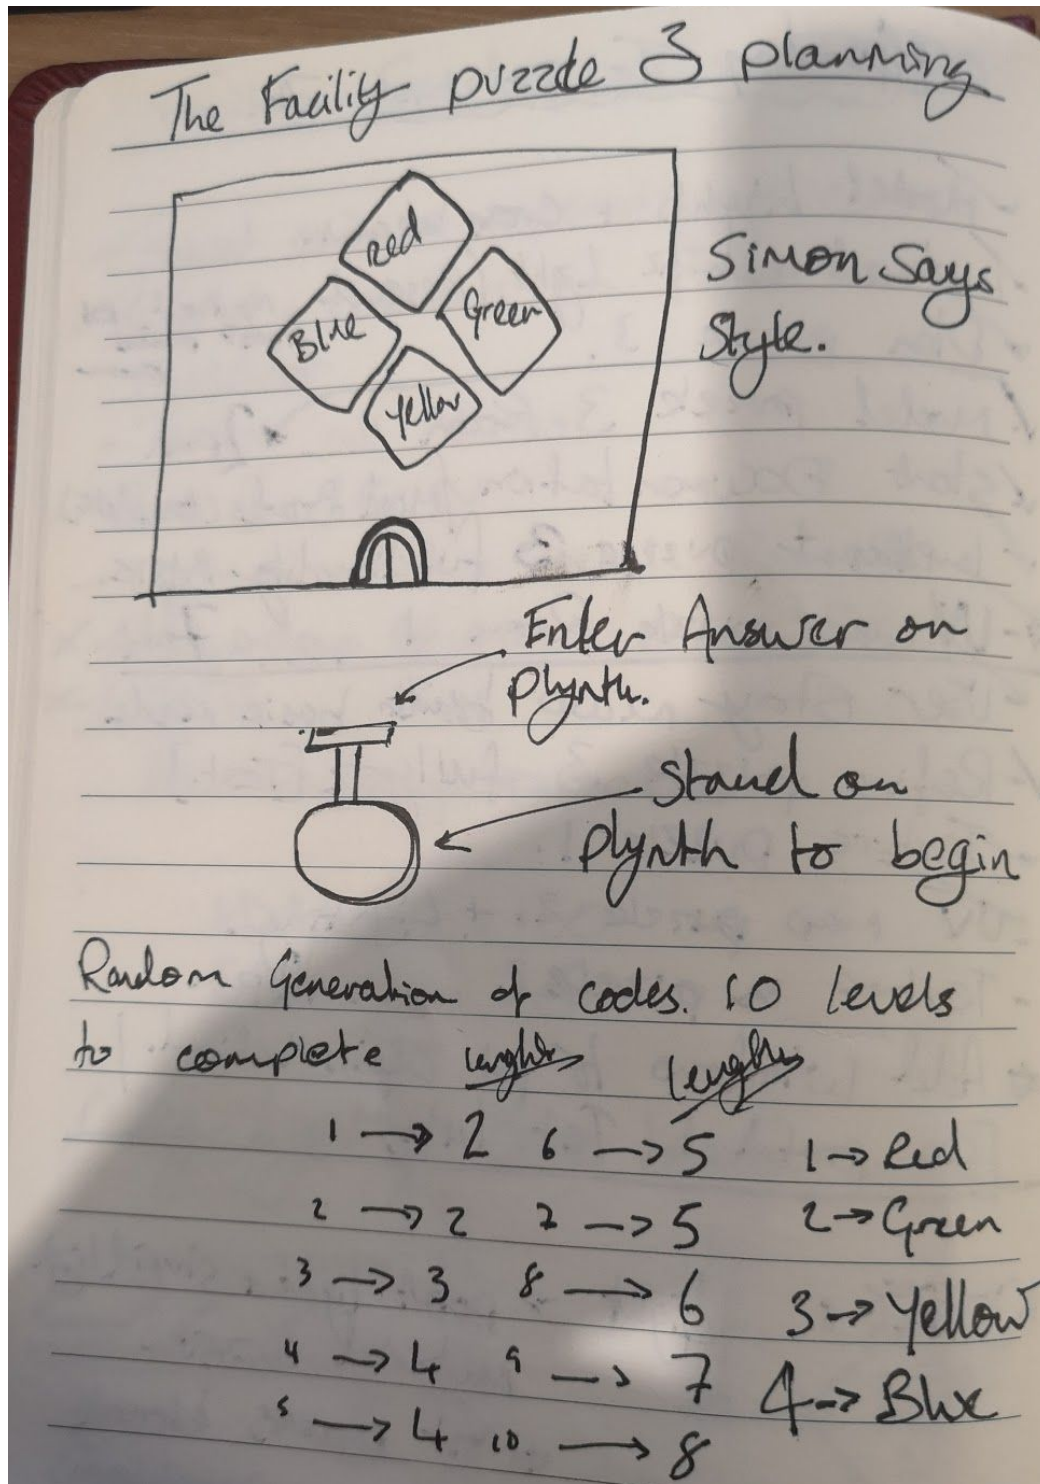 The Facility puzzle 3 planning
Red
Blue
Green
Yellow
Simon Says
Style.
Enter Answer on
plynth.
Stand on
plynth to begin
Random Generation of codes. 10 levels
to complete lenghts lengths
1 → 2 6 → 5 1 → Red
2 → 2 7 → 5 2 → Green
3 → 3 8 → 6 3 → Yellow
4 → 4 9 → 7 4 → Blue
5 → 4 10 → 8